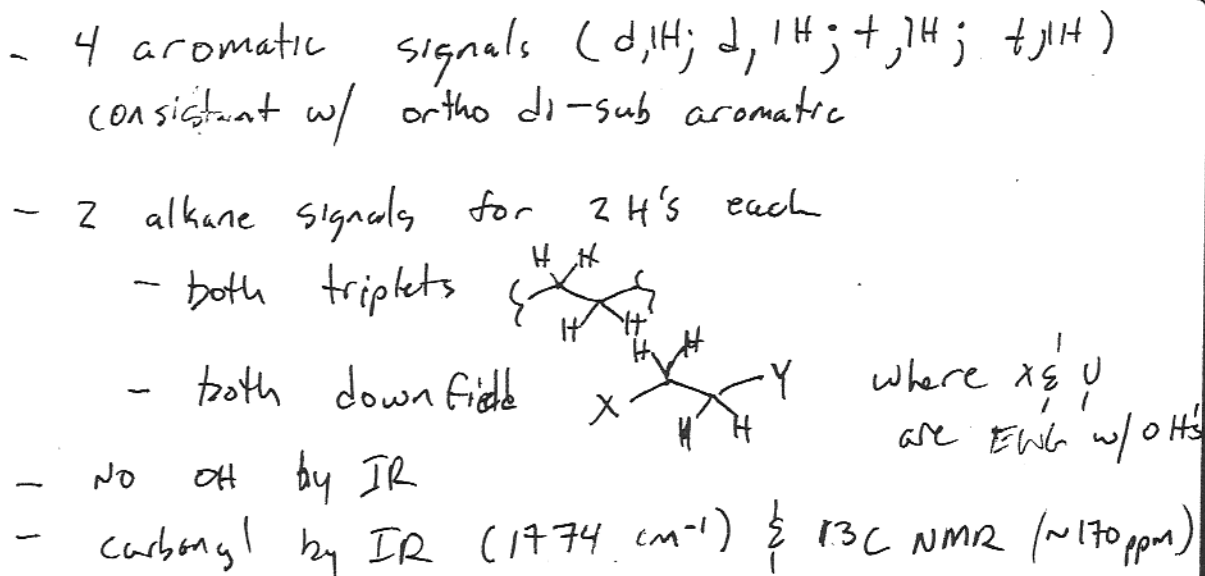 - 4 aromatic signals (d,1H; d,1H; t,1H; t,1H)
consistant w/ ortho di-sub aromatic
- 2 alkane signals for 2H's each
- both triplets
H H
H H
- both downfield X Y H H H H where X & Y
are EWG w/ 0 H's
- No OH by IR
- carbonyl by IR (1774 cm-1) & 13C NMR (~170 ppm)